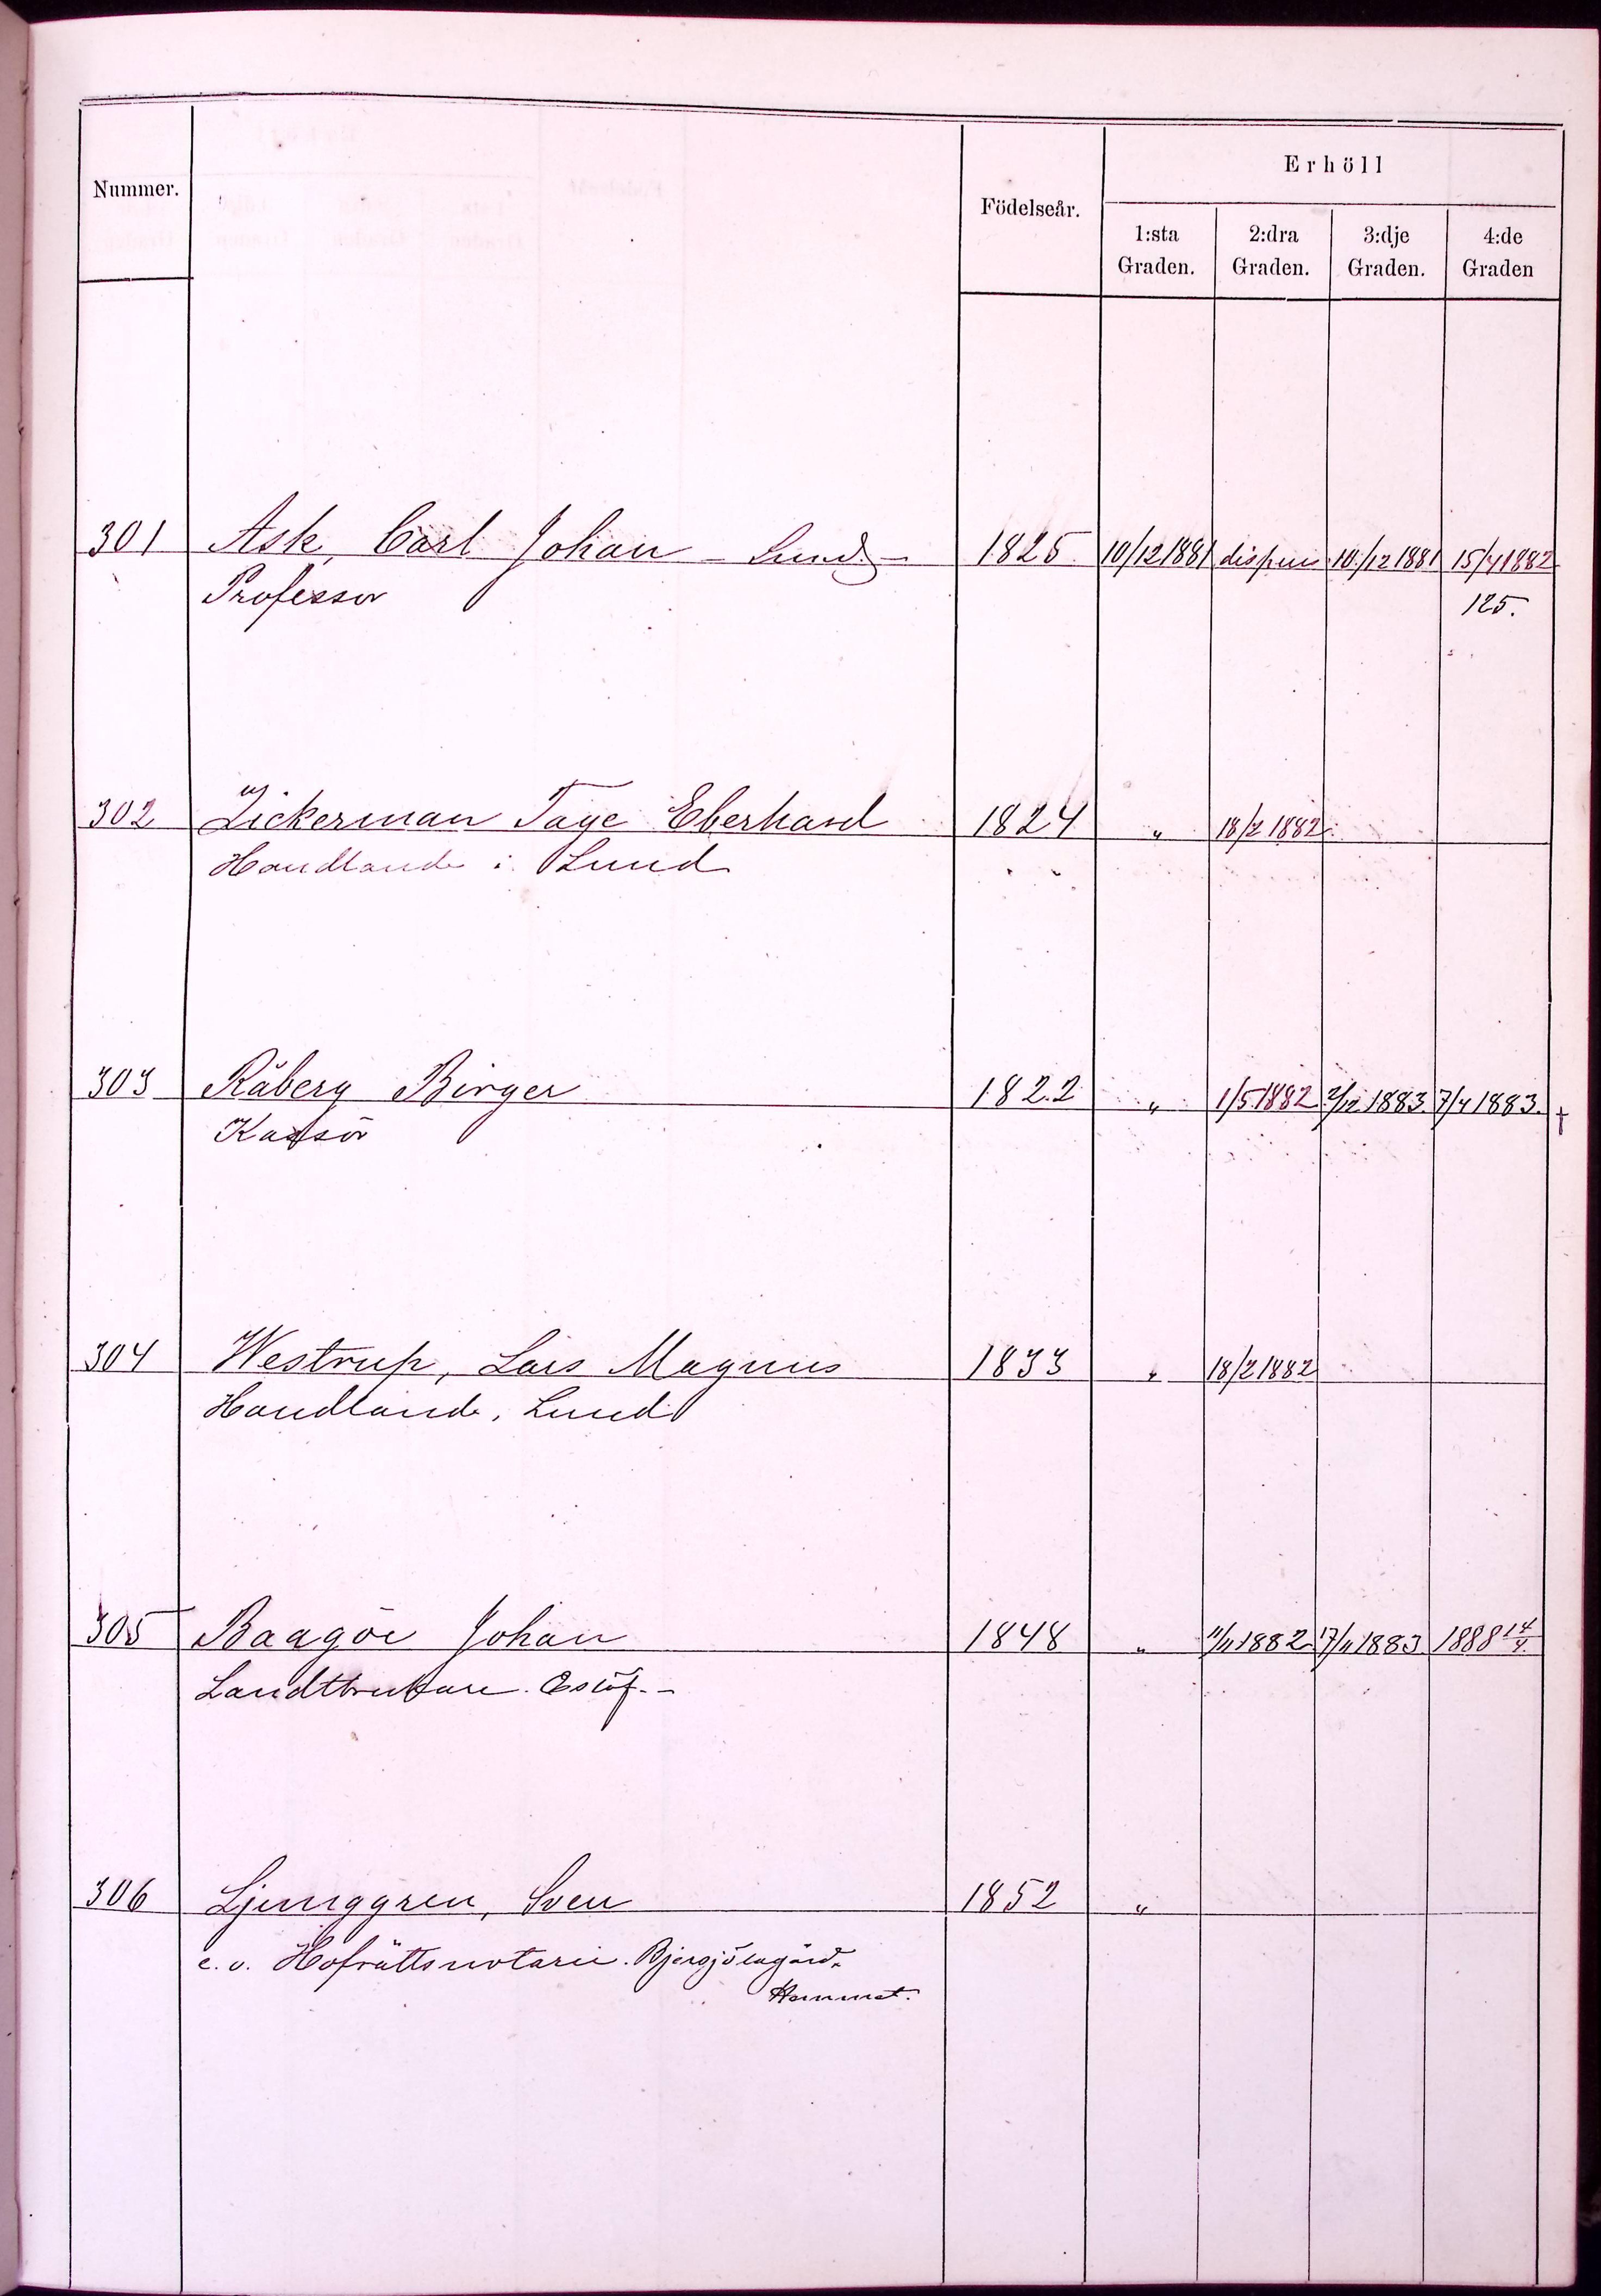 Erhöll
Nummer. Födelseår.
1:sta Graden. 2:dra Graden. 3:dje Graden. 4:de Graden
301 Ask, Carl Johan - Lund - 1825 10/12 1881 dispens 10/12 1881 15/4 1882
Professor 125.
302 Zickerman Tage Eberhard 1824 " 18/2 1882
Handlande i Lund
303 Råberg Birger 1822 " 1/5 1882 2/12 1883 7/4 1883. †
Kassör
304 Westrup, Lars Magnus 1833 " 18/2 1882
Handlande, Lund
305 Baagöe Johan 1848 " 11/11 1882 17/11 1883 1888 14/4
Landtbrukare. Eslöf. -
306 Ljunggren, Sven 1852 "
e. o. Hofrättsnotarie. Bjersjölagård.